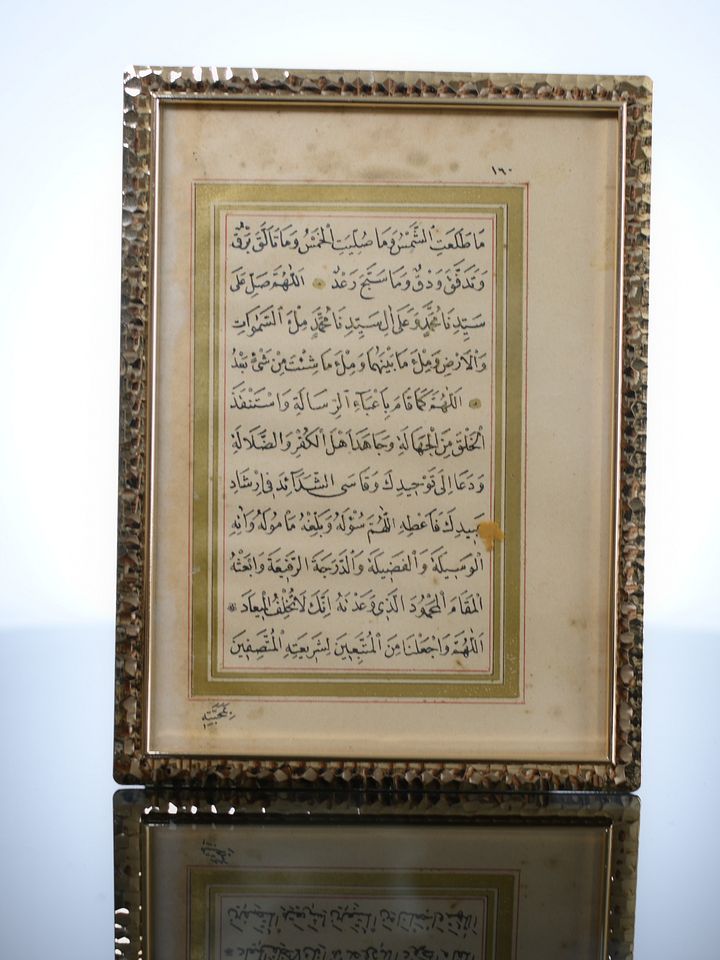 ١٦٠
مَا طَلَعَتِ الشَّمْسُ وَمَا صُلِّيَتِ الْخَمْسُ وَمَا تَأَلَّقَ بَرْقٌ
وَتَدَفَّقَ وَدْقٌ وَمَا سَبَّحَ رَعْدٌ اَللّٰهُمَّ صَلِّ عَلَى
سَيِّدِنَا مُحَمَّدٍ وَعَلَى اٰلِ سَيِّدِنَا مُحَمَّدٍ مِلْءَ السَّمٰوَاتِ
وَالْاَرْضِ وَمِلْءَ مَا بَيْنَهُمَا وَمِلْءَ مَا شِئْتَ مِنْ شَيْءٍ بَعْدُ
اَللّٰهُمَّ كَمَا قَامَ بِاَعْبَاءِ الرِّسَالَةِ وَاسْتَنْقَذَ
الْخَلْقَ مِنَ الْجَهَالَةِ وَجَاهَدَ اَهْلَ الْكُفْرِ وَالضَّلَالَةِ
وَدَعَا اِلٰى تَوْحِيدِكَ وَقَاسَى الشَّدَائِدَ فِي اِرْشَادِ
عَبِيدِكَ فَاَعْطِهِ اللّٰهُمَّ سُؤْلَهُ وَبَلِّغْهُ مَأْمُولَهُ وَاٰتِهِ
الْوَسِيلَةَ وَالْفَضِيلَةَ وَالدَّرَجَةَ الرَّفِيعَةَ وَابْعَثْهُ
الْمَقَامَ الْمَحْمُودَ الَّذِي وَعَدْتَهُ اِنَّكَ لَا تُخْلِفُ الْمِيعَادَ
اَللّٰهُمَّ وَاجْعَلْنَا مِنَ الْمُتَّبِعِينَ لِشَرِيعَتِهِ الْمُتَّصِفِينَ
بِمَحَبَّتِهِ